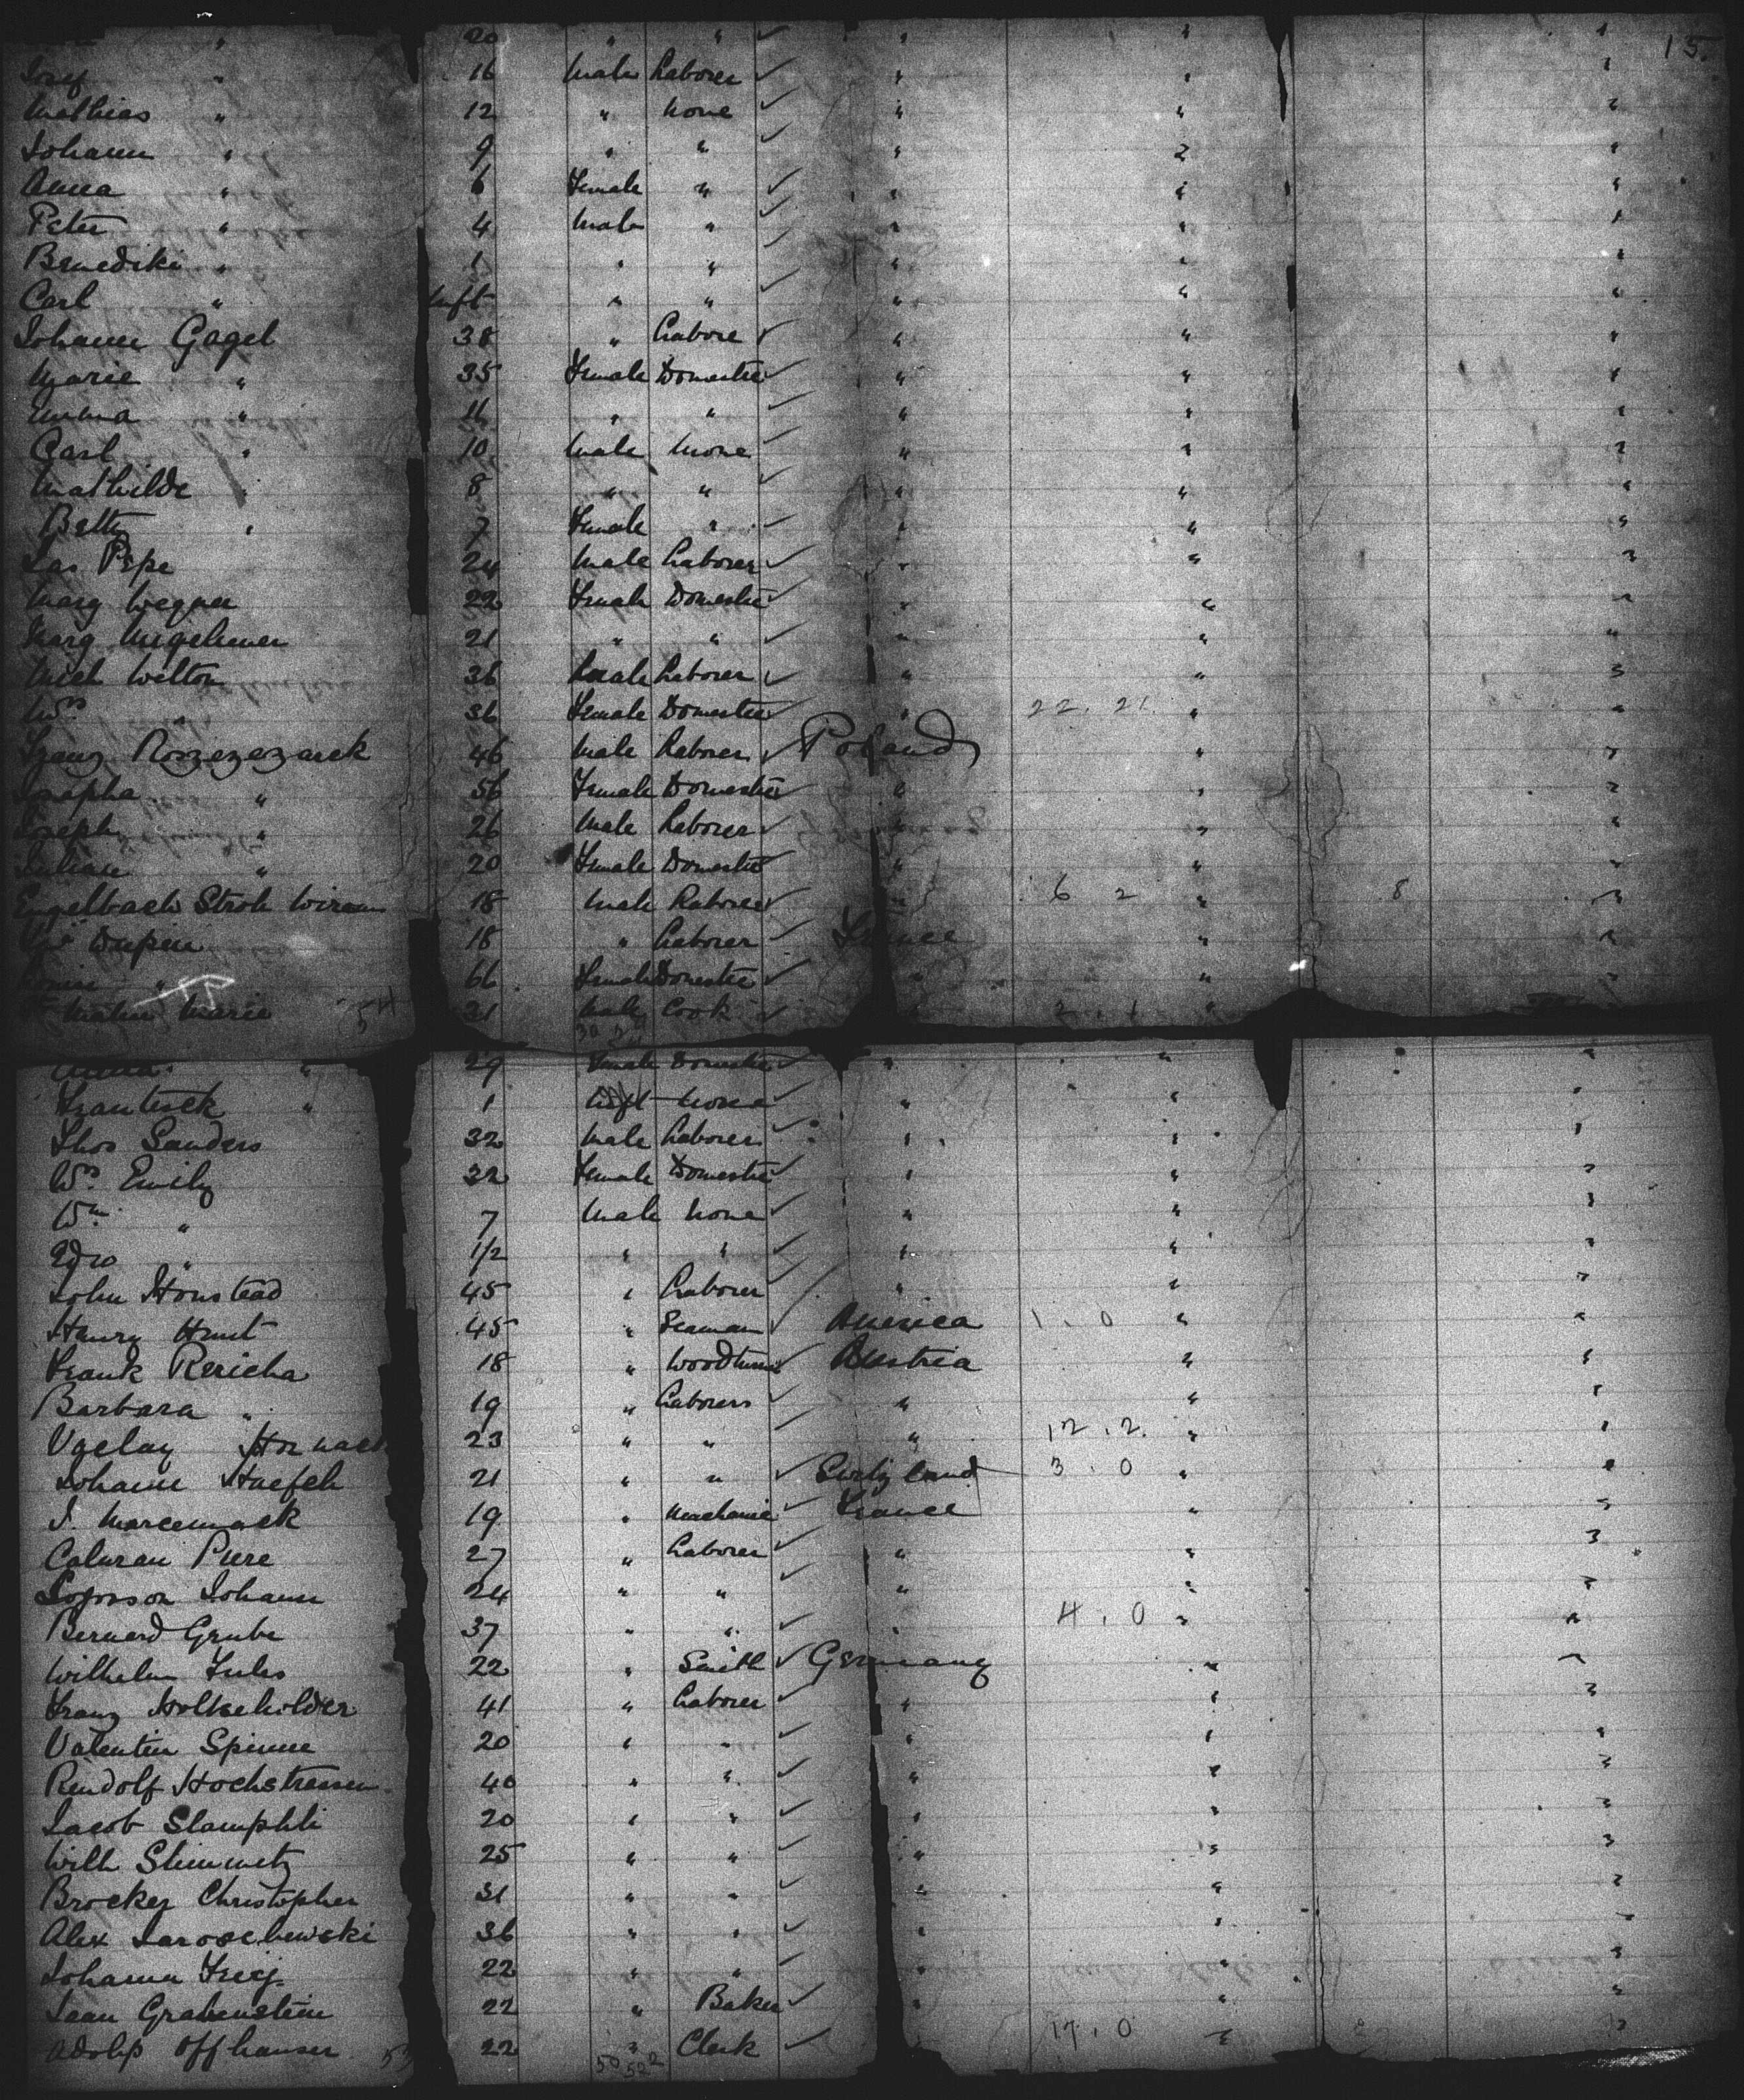 " 20 " " ✓ " " " 15.
Josef " 16 Male Laborer ✓ " " "
Mathias " 12 " None ✓ " " "
Johann " 9 " " ✓ " " "
Anna " 6 Female " ✓ " " "
Peter " 4 Male " ✓ " " "
Benedikt " 1 " " ✓ " " "
Carl " Inft " " ✓ " " "
Johann Gagel 38 " Labore ✓ " " "
Marie " 35 Female Domestic ✓ " " "
Emma " 11 " " ✓ " " "
Carl " 10 Male None ✓ " " "
Mathilde " 8 " " ✓ " " "
Betty " 7 Female " ✓ " " "
Pepe 24 Male Laborer ✓ " " "
Marg Wegner 22 Female Domestic ✓ " " "
Marg 21 " " ✓ " " "
Mich Welton 36 Male Laborer ✓ " " "
" 36 Female Domestic ✓ " 22. 21. " "
Franz Roszezezarek 46 Male Laborer ✓ Poland " "
Josepha " 56 Female Domestic ✓ " " "
Joseph " 26 Male Laborer ✓ " " "
" 20 Female Domestic ✓ " " "
Engelbach Stroh 18 Male Laborer ✓ " 6 2 " 8 "
Dupin 18 " Laborer ✓ France " "
Louise " 66 Female Domestic ✓ " " "
Marie 54 31 Male Cook ✓ " 2. 1 "
Anna " 29 Female Domestic ✓ " " "
Frantisek " 1 Inft None ✓ " " "
Thos Sanders 32 Male Laborer ✓ " " "
Ws. Emily 32 Female Domestic ✓ " " "
Wm. " 7 Male None ✓ " " "
Edw " 1/2 " " ✓ " " "
John Honstead 45 " Laborer ✓ " " "
Henry Hunt 45 " Seaman ✓ America 1. 0 " "
Frank Rericha 18 " Woodturner ✓ Austria " "
Barbara " 19 " Laborers ✓ " " "
Vaclav 23 " " ✓ " 12. 2. " "
Johann Haefeli 21 " " ✓ 3. 0 " "
J. Marcemack 19 " Mechanic ✓ France " "
Calurau Piere 27 " Laborer ✓ " " "
Johann 24 " " ✓ " " "
Bernard Grube 37 " " ✓ " 4. 0 " "
Wilhelm Fuhs 22 " Smith ✓ Germany " "
Franz Holtschilder 41 " Laborer ✓ " " "
Valentin Spinne 20 " " ✓ " " "
Rudolf Hochstrassen 40 " " ✓ " " "
Jacob Stamphli 20 " " ✓ " " "
Wilh Stimmetz 25 " " ✓ " " "
Brockey Christopher 31 " " ✓ " " "
Alex Jaroschewski 36 " " ✓ " " "
Johann 22 " " " " "
Jean Grabenstein 22 " Baker ✓ " " "
Adolp Offhauser 53 22 " Clerk ✓ 17. 0 " "
50 52 2